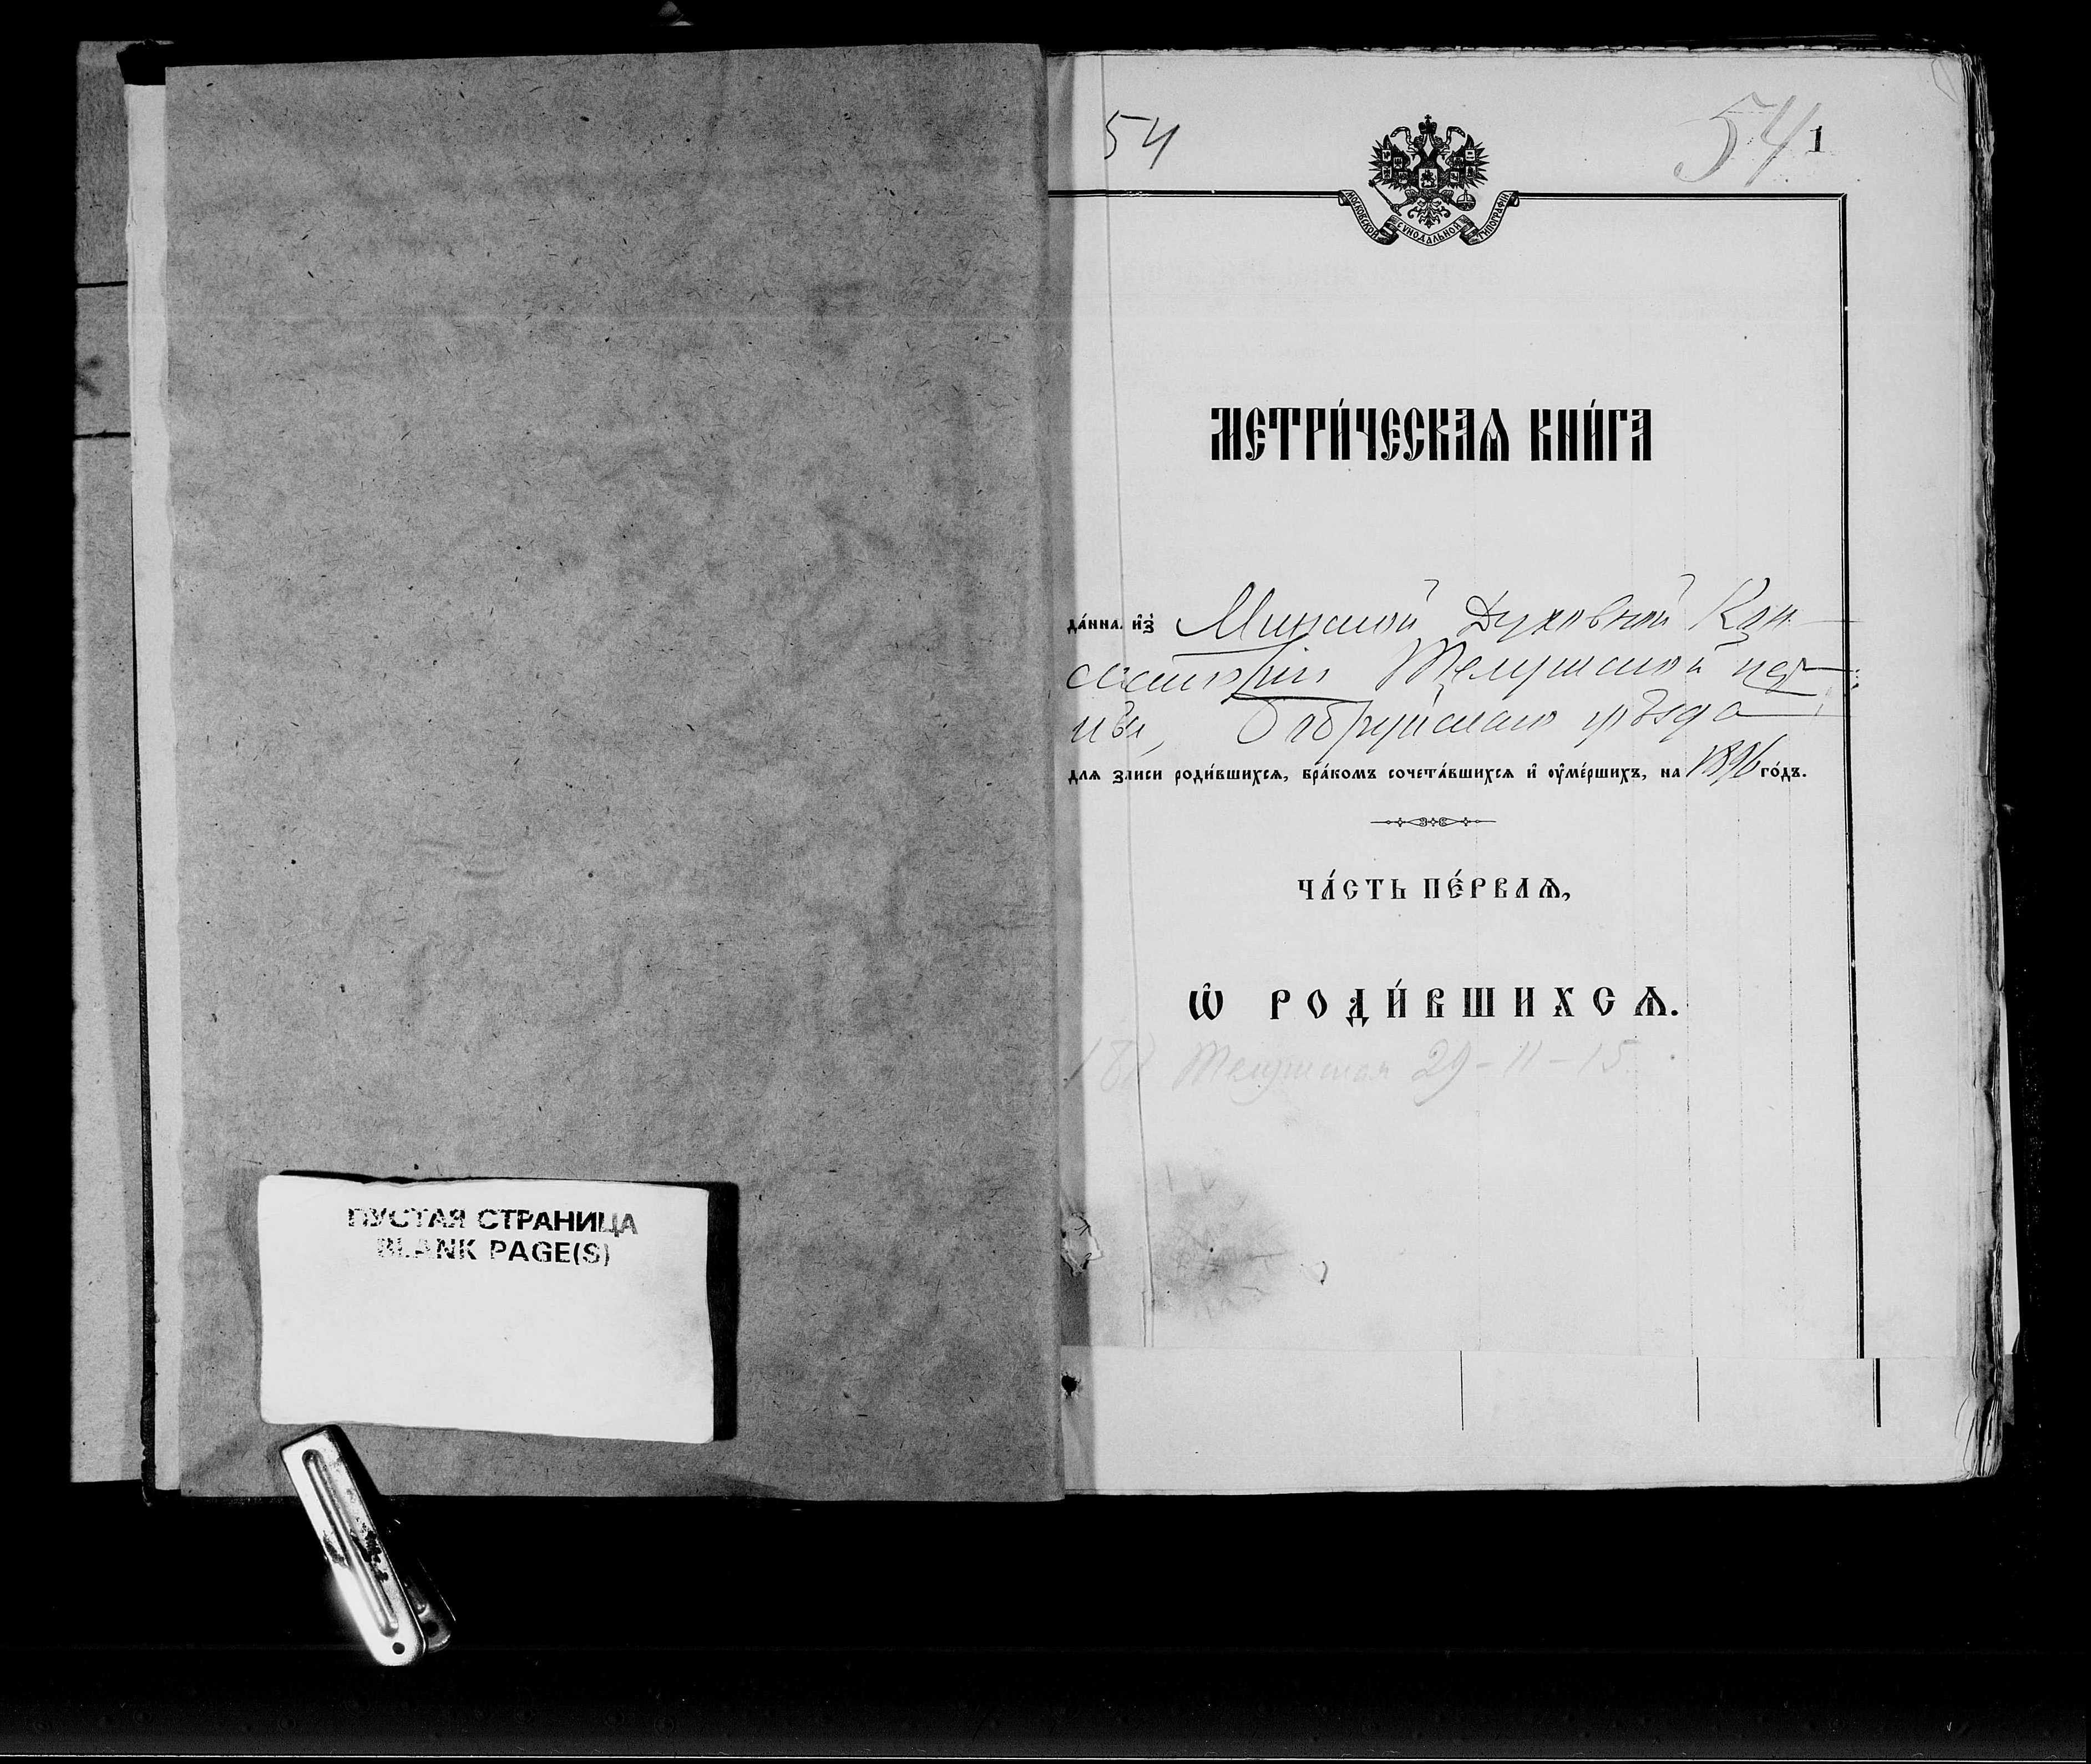 54
54 1
МОСКОВСКОЙ СѴНОДАЛЬНОЙ ТИПОГРАФІИ
МЕТРИ́ЧЕСКАѦ КНИ́ГА
да́нна и҆з̾ Минской Духовной Кон-
систоріи Телушской цер-
кви, Бобруйскаго уѣзда
для записи роди́вшихсѧ, бра́комъ сочета́вшихсѧ и҆ оу҆ме́ршихъ, на 1896 го́дъ.
ЧА́СТЬ ПЕ́РВАѦ,
Ѡ҆ РОДИ́ВШИХСѦ.
Телушская 29-11-15
ПУСТАЯ СТРАНИЦА
BLANK PAGE(S)